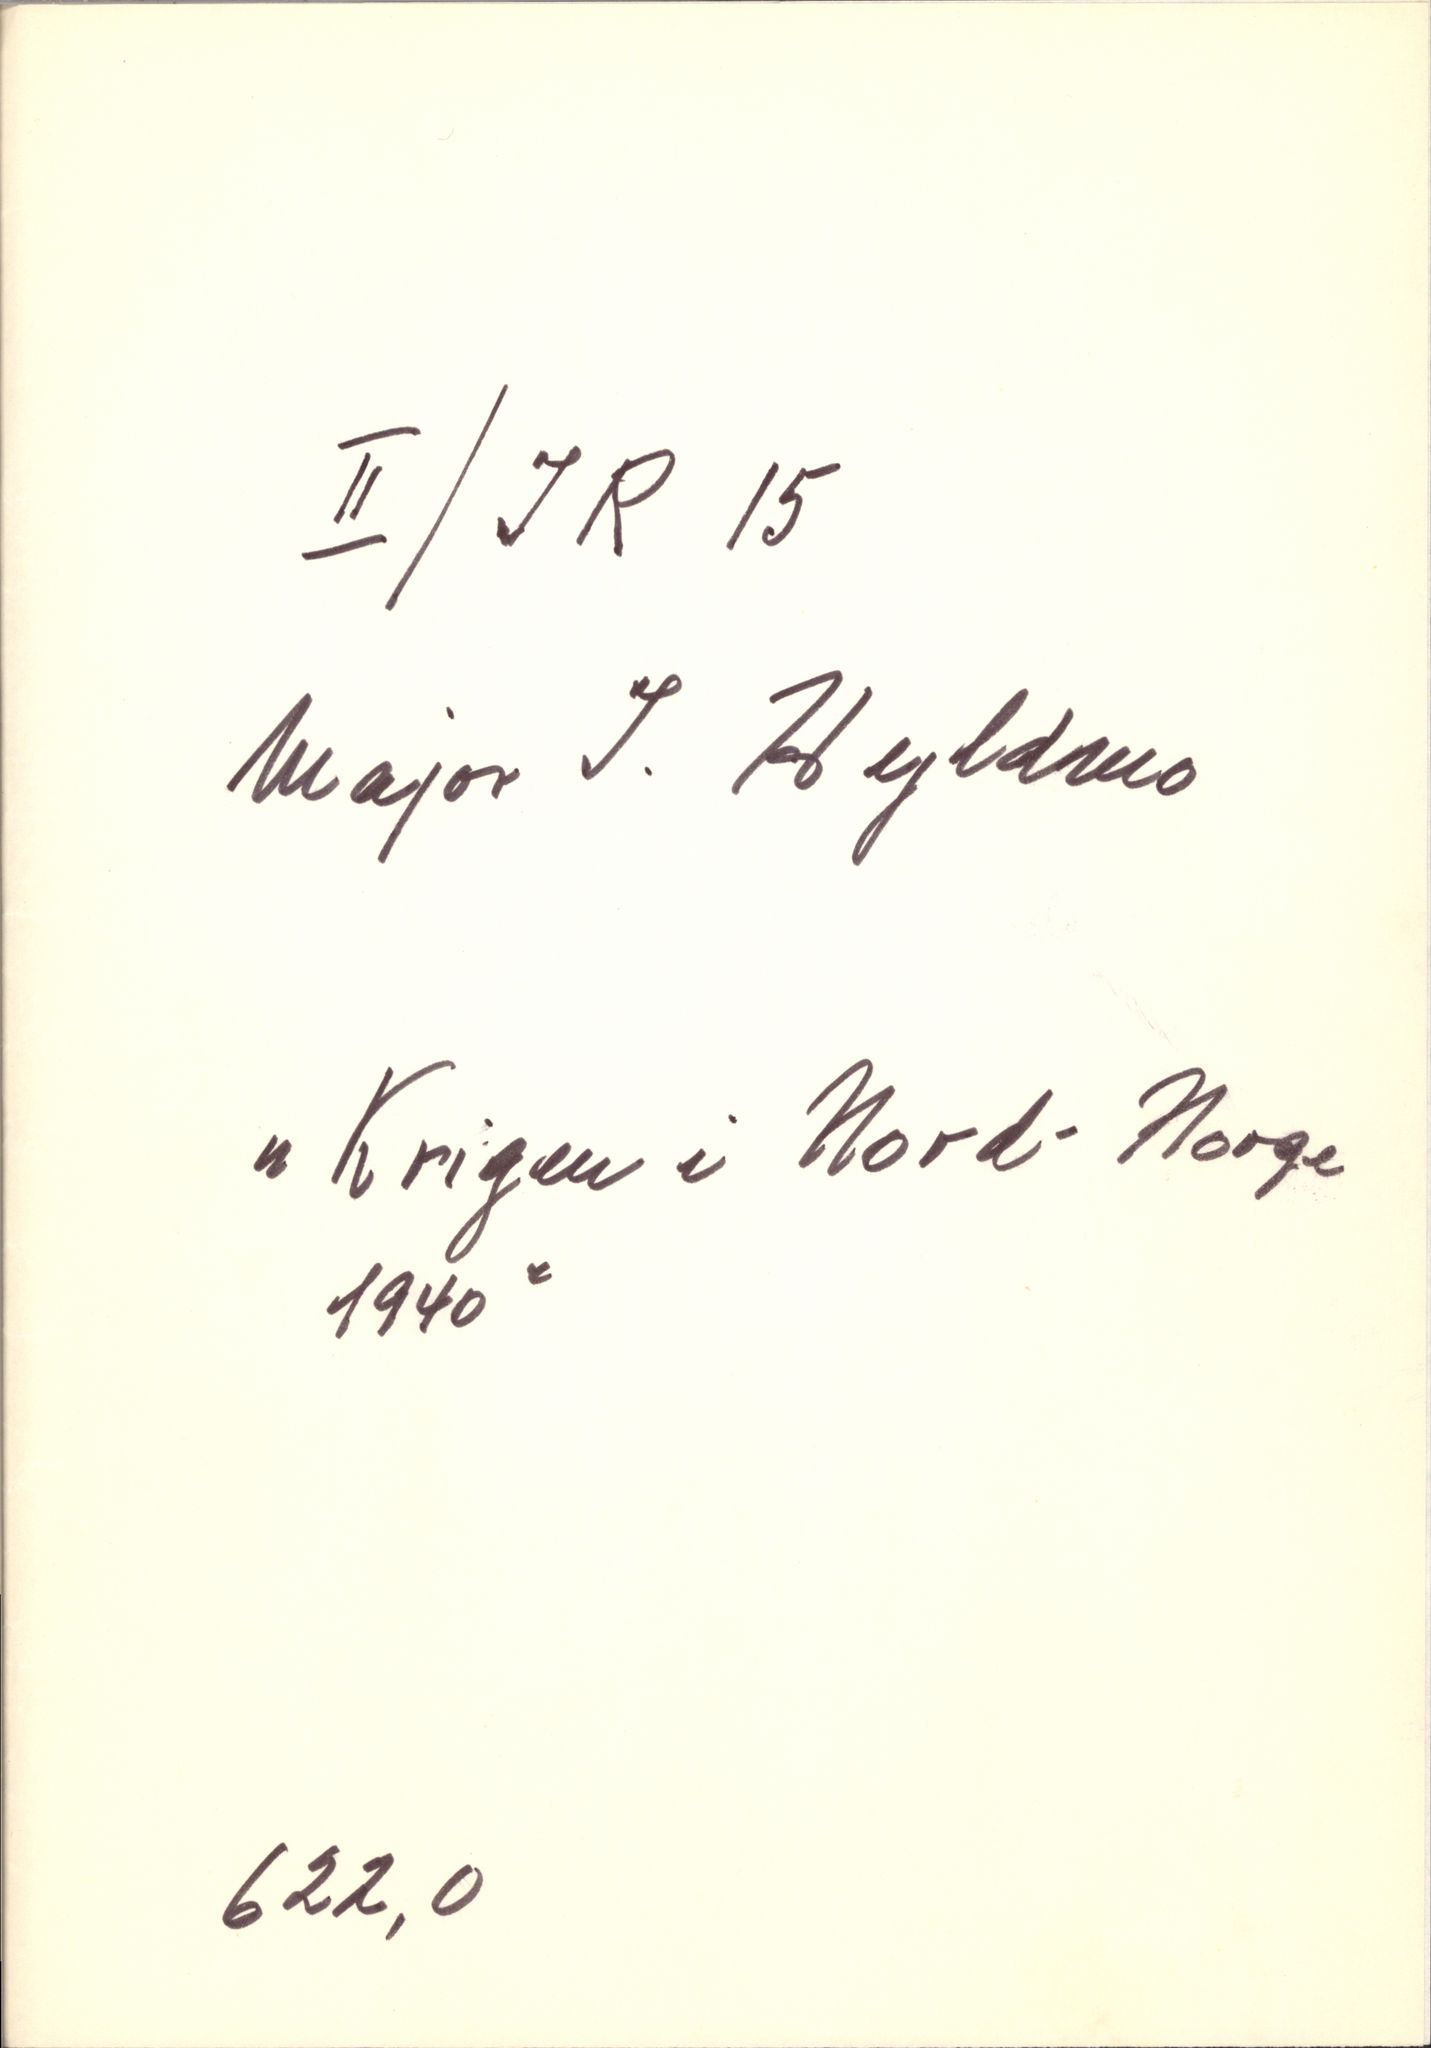 II/IR 15
Major I. Hyldmo
"Krigen i Nord-Norge
1940"
622,0